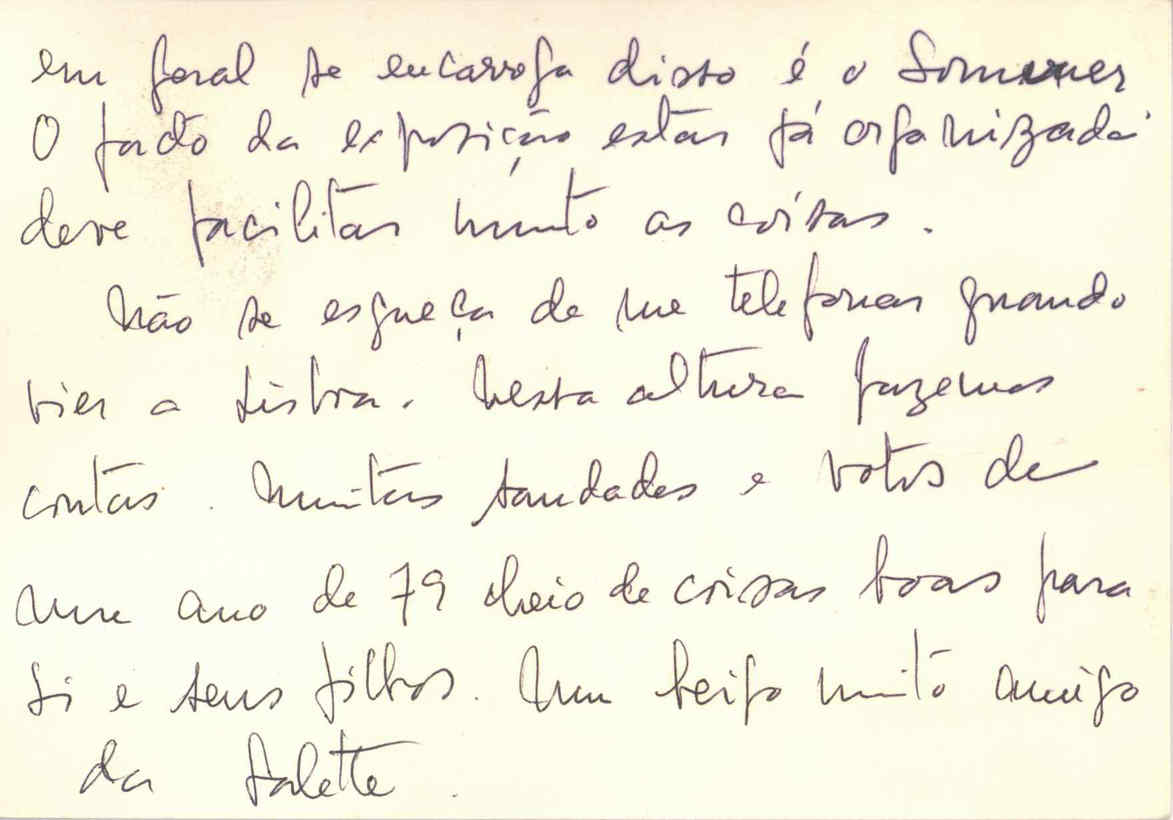 em geral se encarrega disto é o Sommer
O facto da exposição estar já organizada
deve facilitar muito as coisas.
Não se esqueça de me telefonar quando
vier a Lisboa. Nesta altura fazemos
contas. Muitas saudades e votos de
um ano de 79 cheio de coisas boas para
si e seus filhos. Um beijo muito amigo
da Salette.